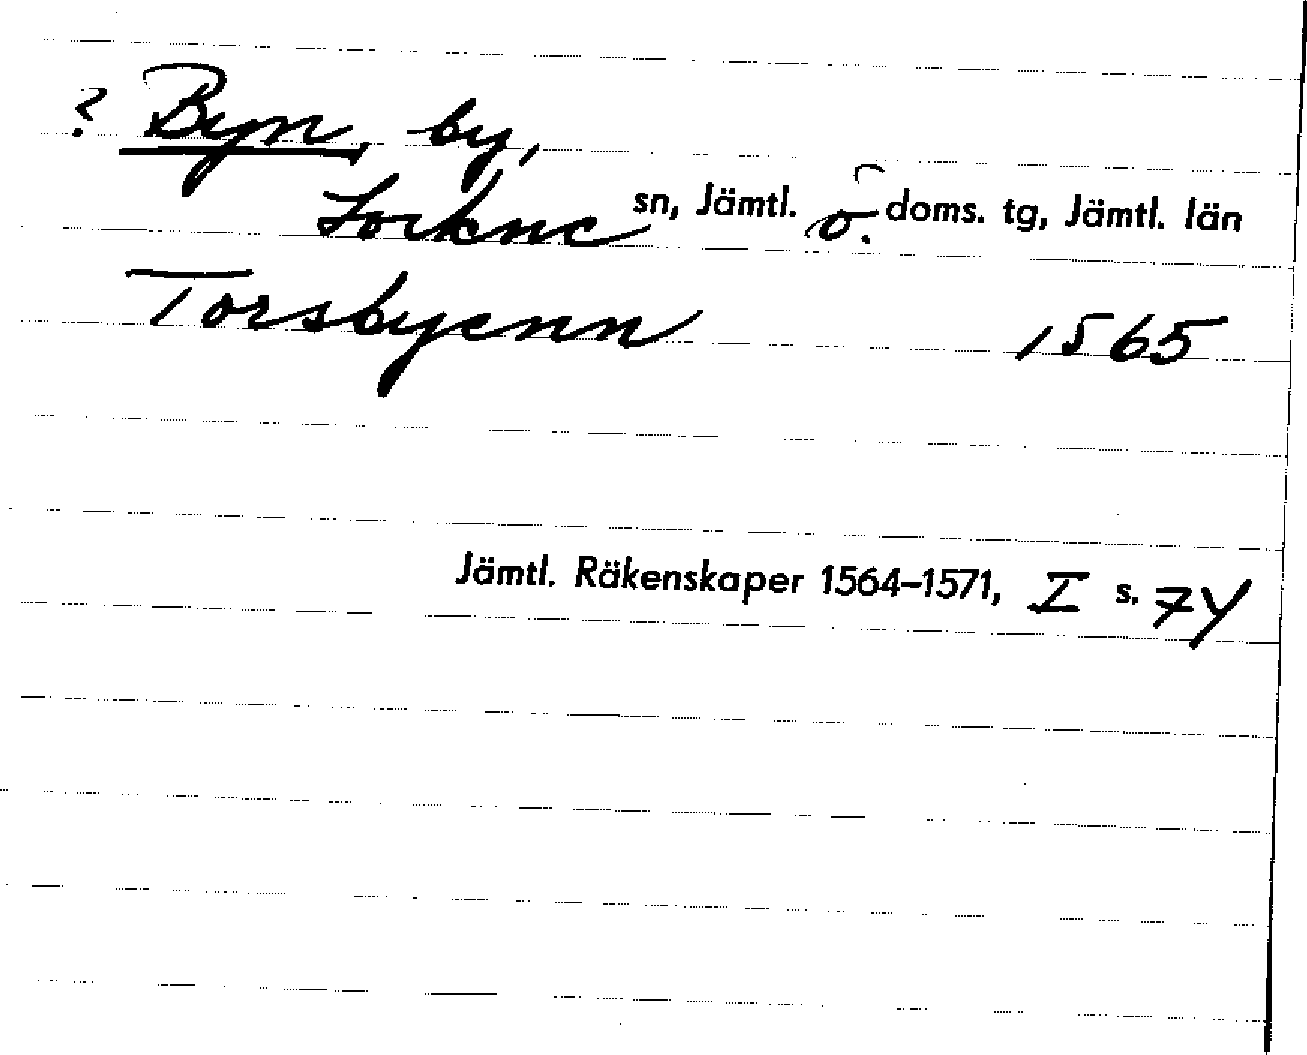 ? Byn, by,
Lockne sn, Jämtl. ö. doms. tg, Jämtl. län
Torsbyenn 1565
Jämtl. Räkenskaper 1564–1571, I s. 74